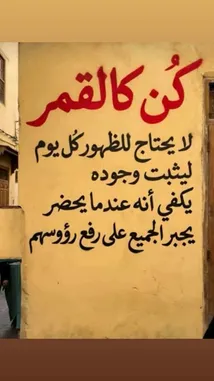 كُن كالقمر
لا يحتاج للظهور كُل يوم
ليثبت وجوده
يكفي أنه عندما يحضر
يجبر الجميع على رفع رؤوسهم